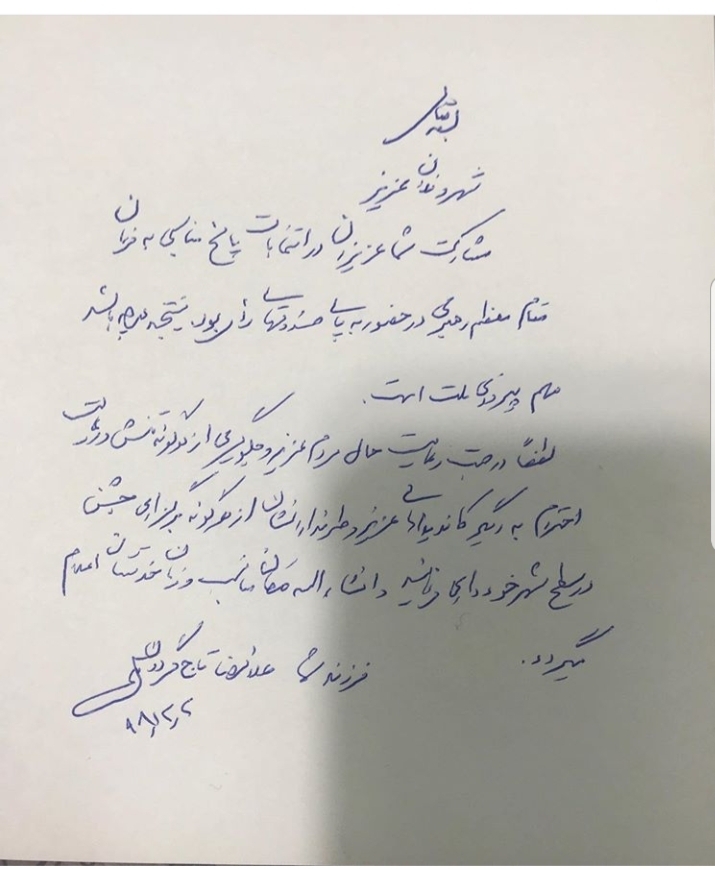 بسمه تعالی
شهروندان عزیز
مشارکت شما عزیزان در انتخابات پاسخ مناسبی به فرمان
مقام معظم رهبری در حضور به پای صندوقهای رأی بود. نتیجه هرچه باشد
مهم پیروزی ملت است.
لطفاً در جهت رعایت حال مردم عزیز و جلوگیری از هرگونه تنش و رعایت
احترام به دیگر کاندیداهای عزیز و طرفدارانشان از هرگونه برگزاری جشن
در سطح شهر خودداری فرمائید و انشاءاله مکان مناسب و زمان خدمتتان اعلام
میگردد.
فرزند شما غلامرضا تاجگردون
۹۸/۱۲/۲